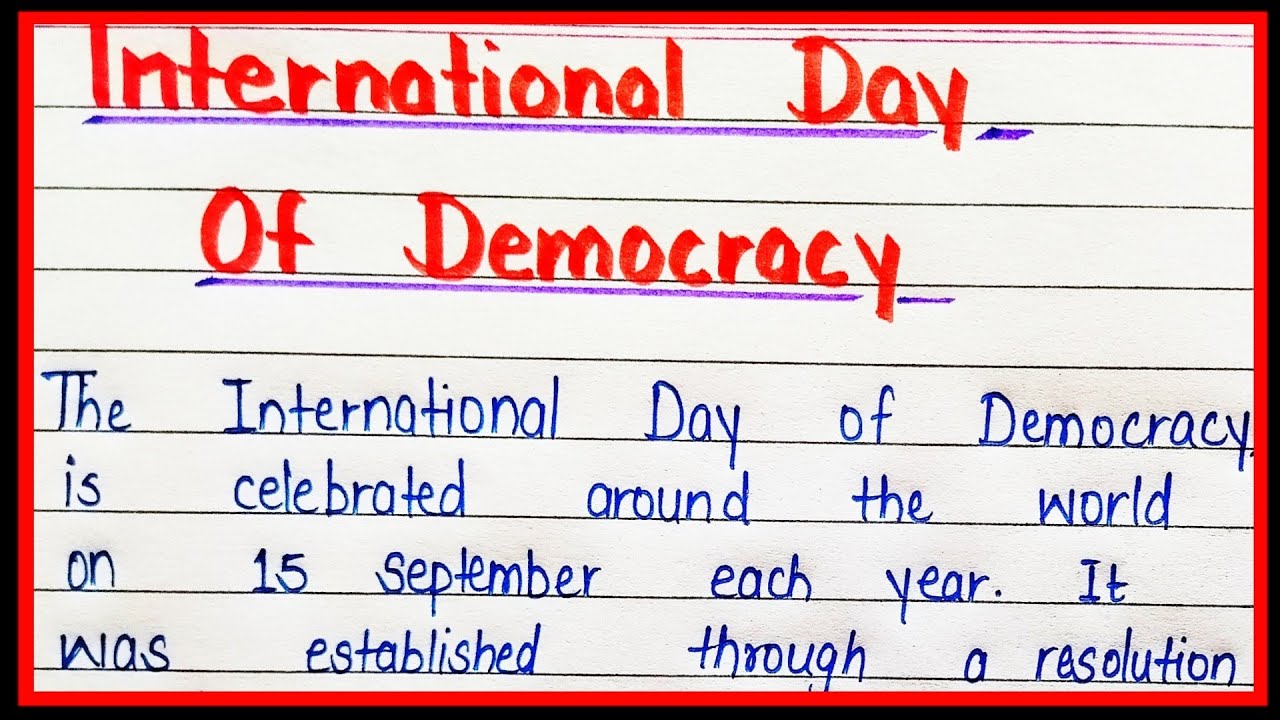 International Day
Of Democracy
The International Day of Democracy
is celebrated around the world
on 15 September each year. It
was established through a resolution